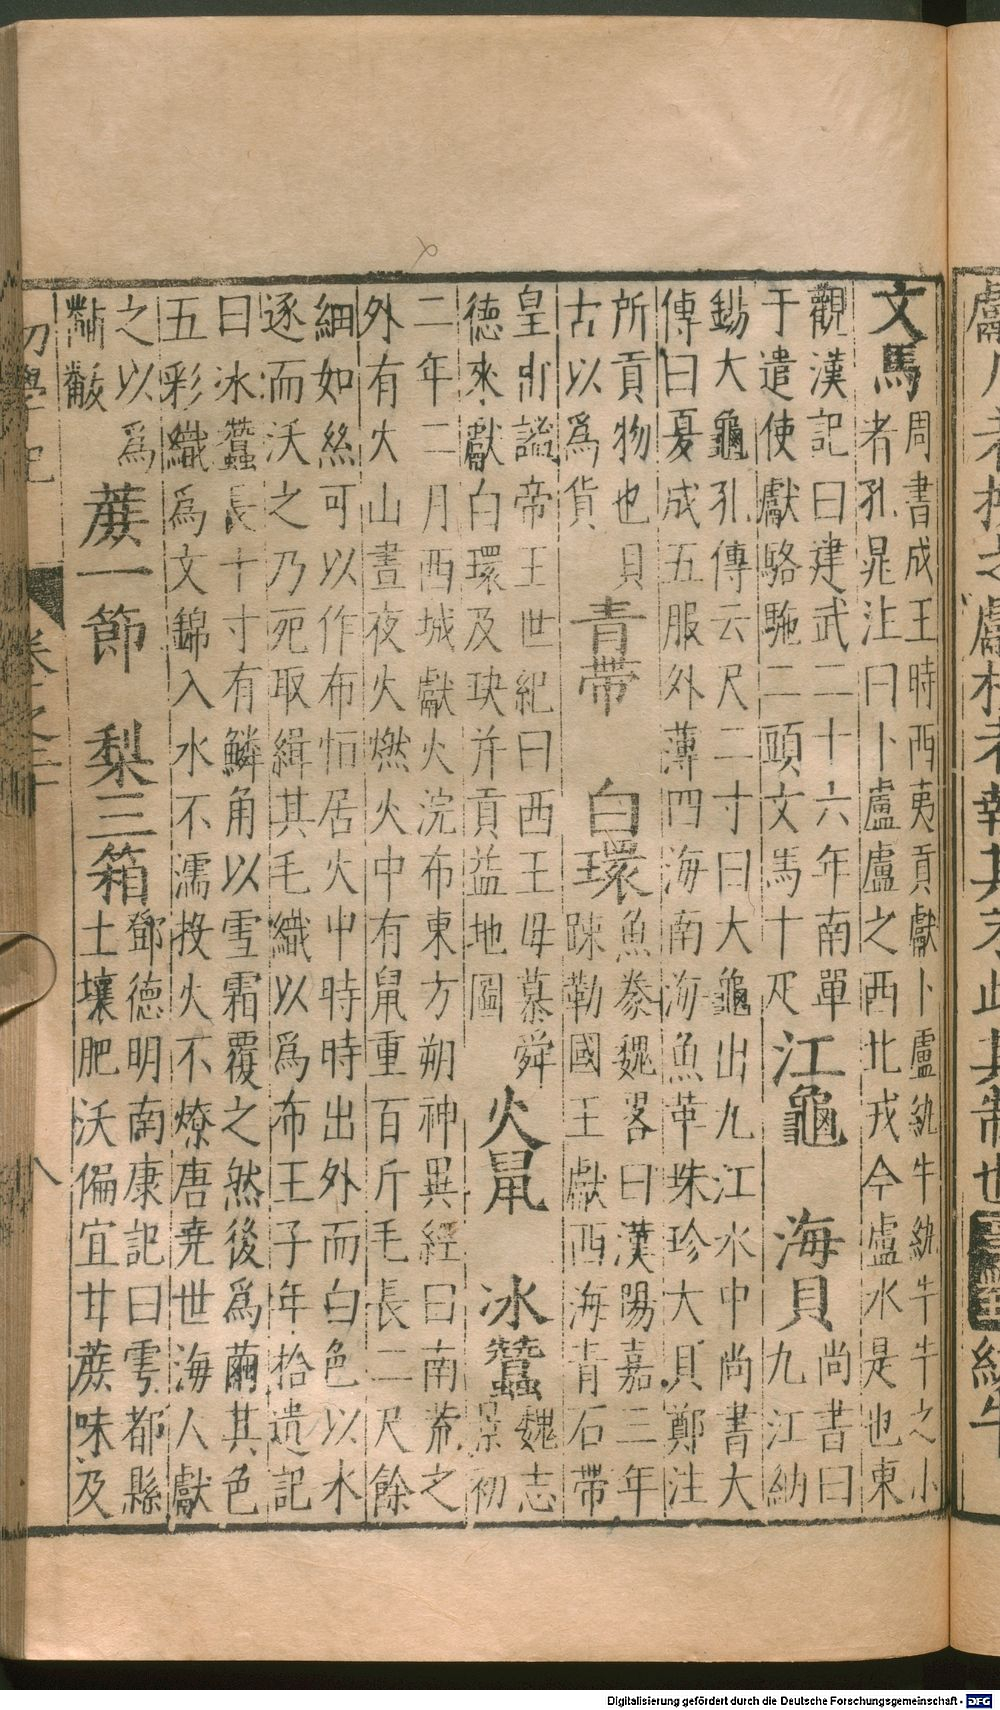 文馬
周書成王時西夷貢獻卜盧紈牛紈牛牛之小
者孔晁注曰卜盧盧之西北戎今盧水是也東
觀漢記曰建武二十六年南單
于遣使獻駱駞二頭文馬十疋
江龜 海貝
尚書曰
九江納
錫大龜孔傳云尺二寸曰大龜出九江水中尚書大
傳曰夏成五服外薄四海南海魚革珠珍大貝鄭注
所貢物也貝
古以為貨
青帶 白環
魚豢魏畧曰漢陽嘉三年
踈勒國王獻西海青石帶
皇甫謐帝王世紀曰西王母慕舜
德來獻白環及玦并貢益地圖
火鼠 冰蠶
魏志
景初
二年二月西城獻火浣布東方朔神異經曰南荒之
外有火山晝夜火燃火中有鼠重百斤毛長二尺餘
細如絲可以作布恒居火中時時出外而白色以水
逐而沃之乃死取緝其毛織以為布王子年拾遺記
曰冰蠶長十寸有鱗角以雪霜覆之然後為繭其色
五彩織為文錦入水不濡投火不燎唐堯世海人獻
之以為
黼黻
蔗一節 梨三箱
鄧德明南康記曰雩都縣
土壤肥沃偏宜甘蔗味及
初學記 卷之二十 八
Digitalisierung gefördert durch die Deutsche Forschungsgemeinschaft - DFG